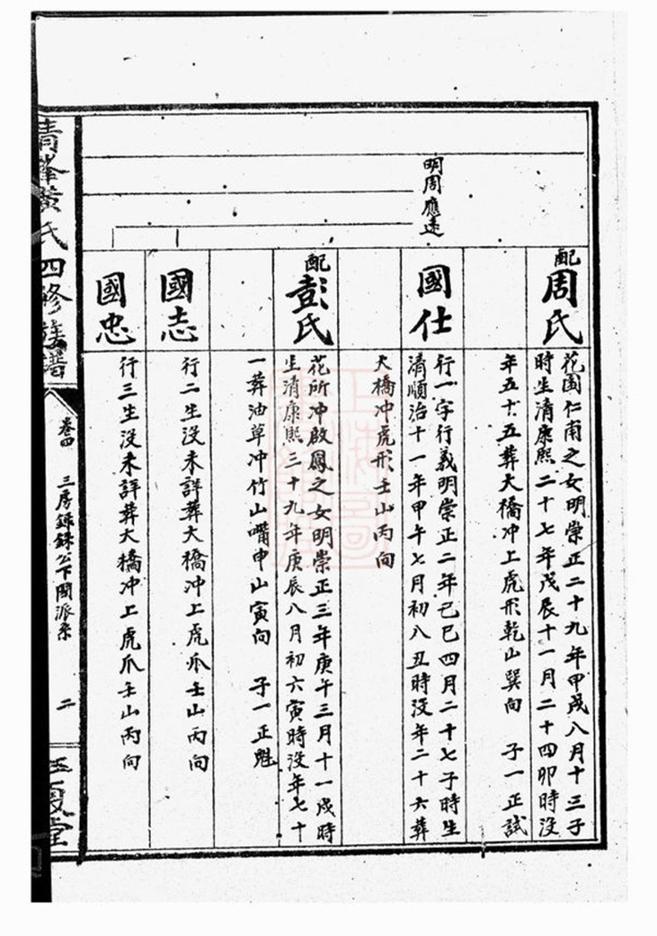 明周應遠
配周氏
花園仁甫之女明崇正二十九年甲戌八月十三子
時生清康熙二十七年戊辰十一月二十四卯時沒
年五十五葬大橋冲上虎形乾山巽向 子一正試
國仕
行一字行義明崇正二年己巳四月二十七子時生
清順治十一年甲午七月初八丑時沒年二十六葬
大橋冲虎形壬山丙向
配彭氏
花所冲啟鳳之女明崇正三年庚午三月十一戌時
生清康熙三十九年庚辰八月初六寅時沒年七十
一葬油草冲竹山嘴申山寅向 子一正魁
國志
行二生沒未詳葬大橋冲上虎爪壬山丙向
國忠
行三生沒未詳葬大橋冲上虎爪壬山丙向
青峰黃氏四修族譜
卷四 三房錄公下閏派系 二